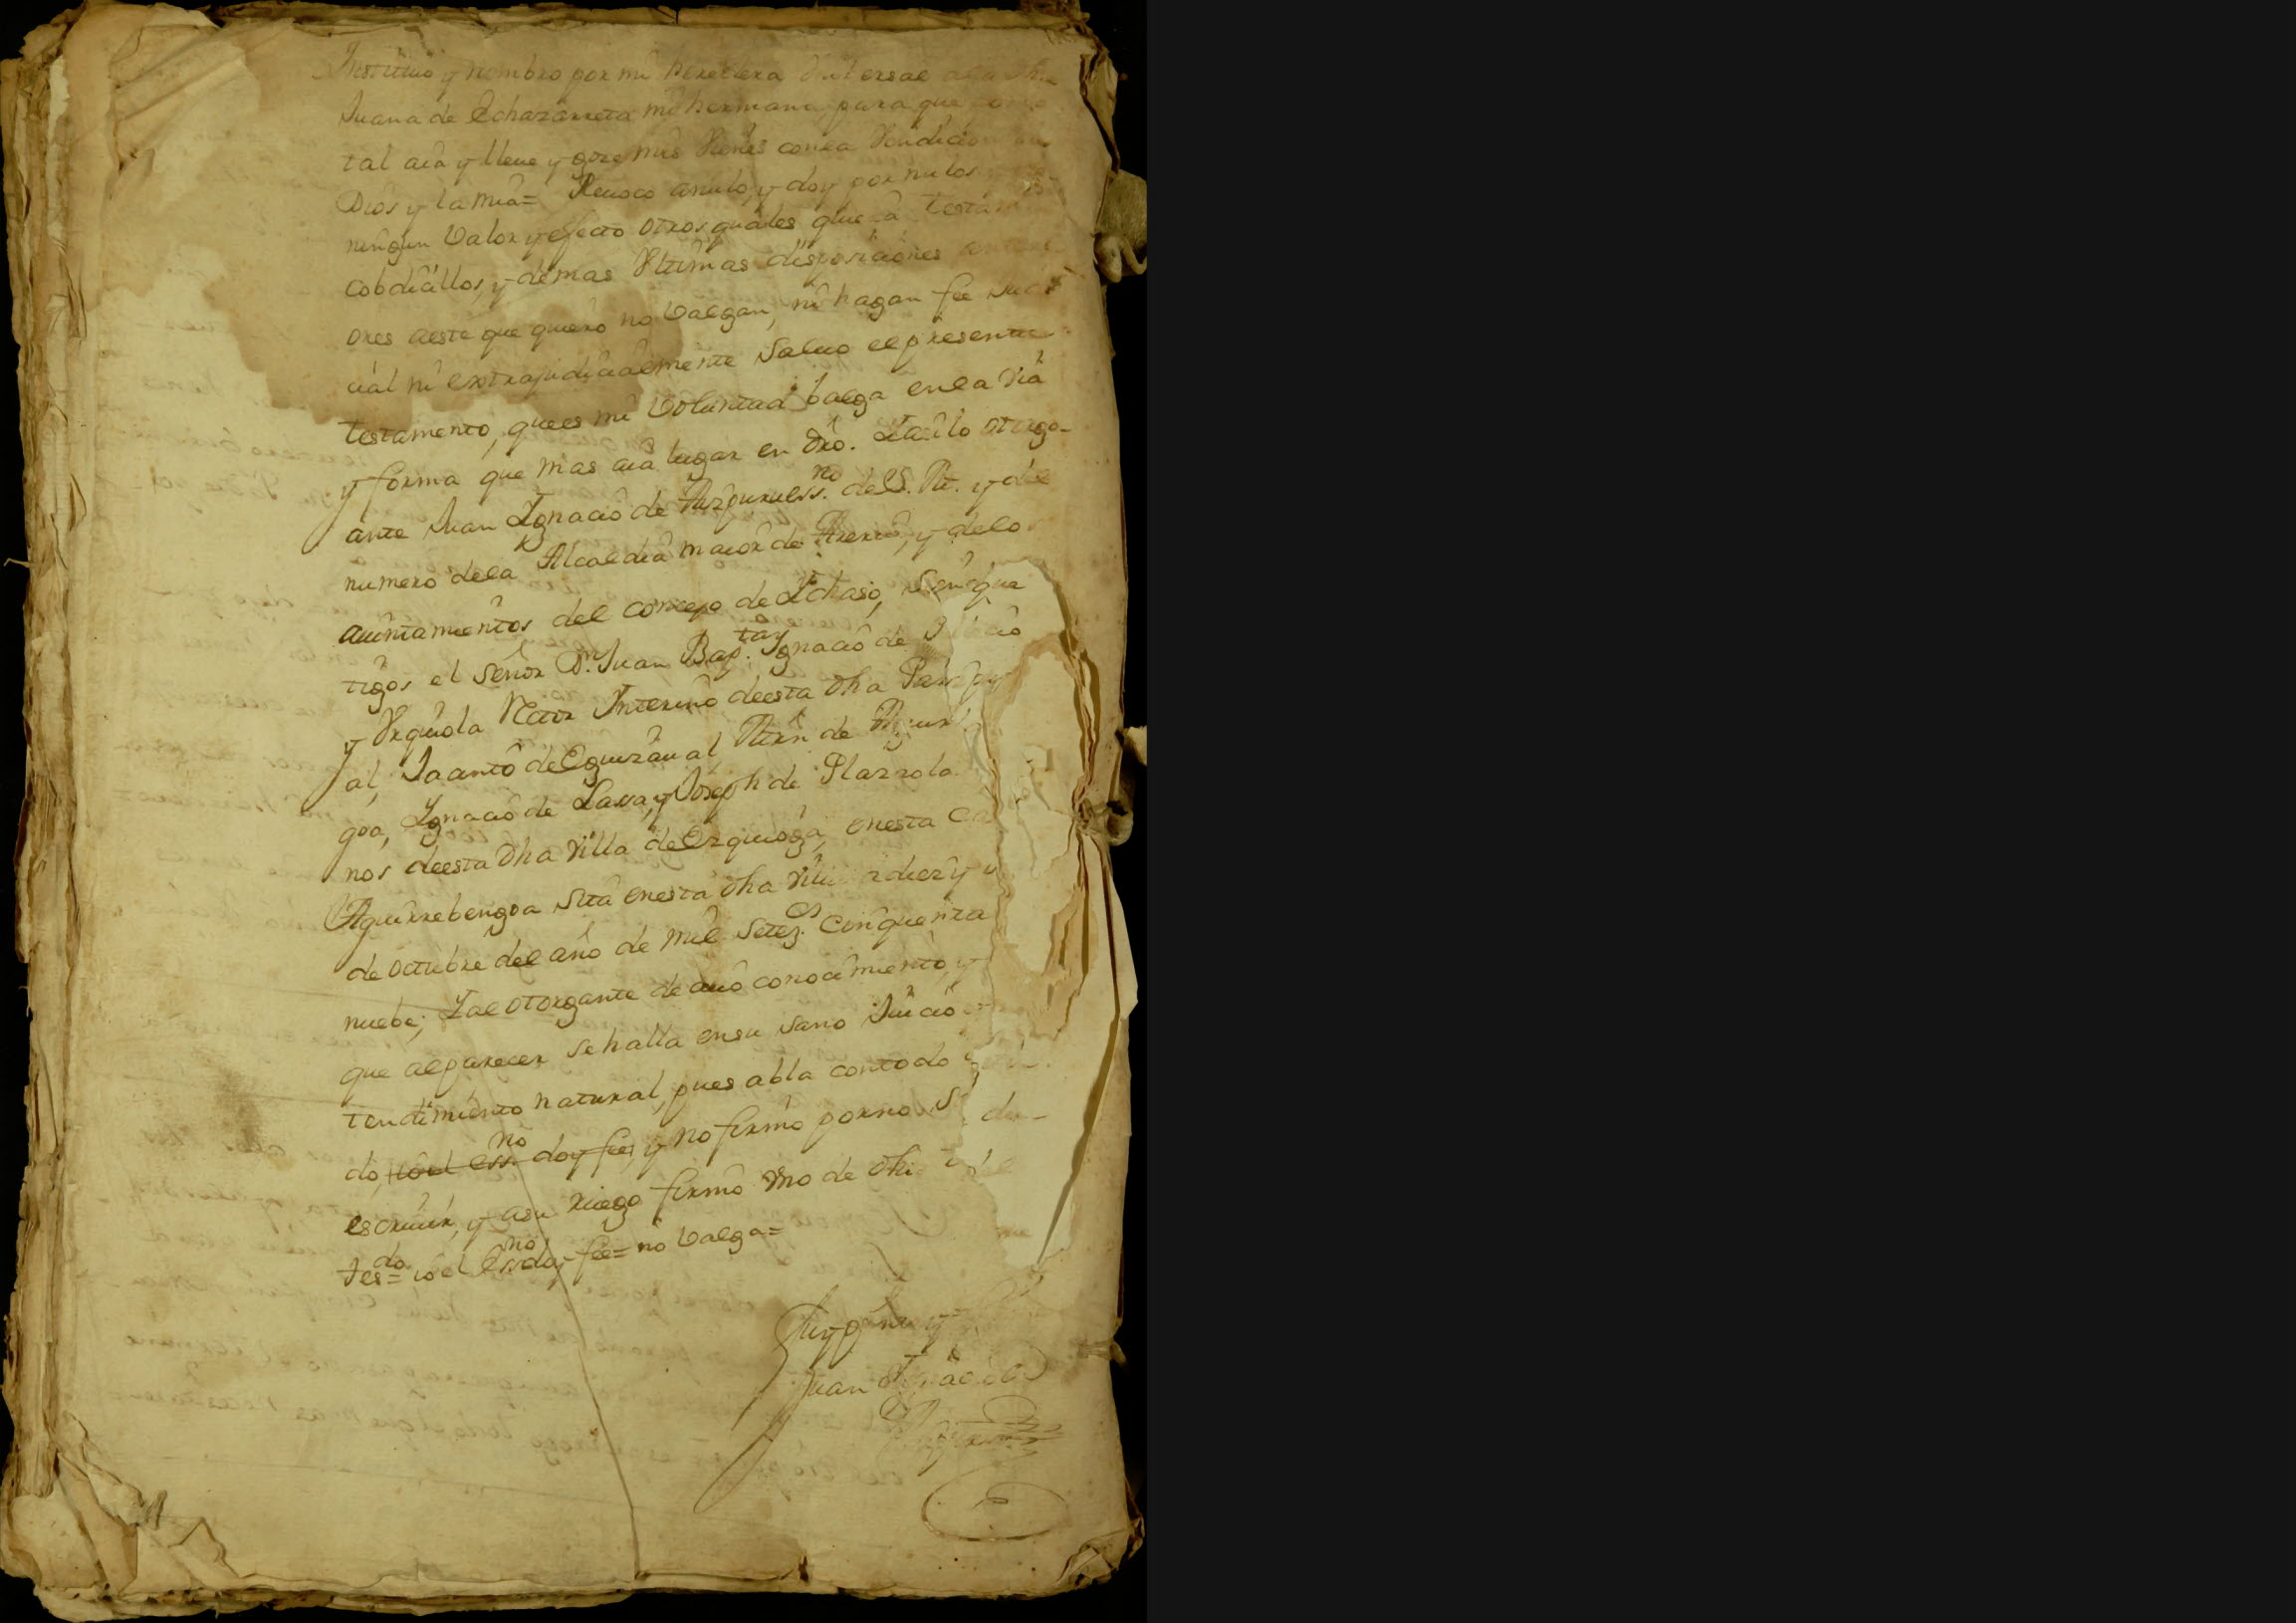 Instituio y nombro por mi heredera Vniversal a la dha
Juana de Echazarreta mi hermana, para que como
tal aia y lleue y goze mis Vienes con la Vendicion de
Dios y la mia= Reuoco anulo, y doy por nulos y de
ningun Valor y efecto otros quales quera testam
cobdicillos, y demas Vltimas disposiciones anteri
ores a este que quiero no Valgan, ni hagan fee Judi
cial ni extrajudicialmente Saluo el presente
testamento, que es mi Voluntad balga en la Via
y forma que mas aia lugar en dro. I asi lo otorgo
ante Juan Ignacio de Aizpuru ess.no de S. M. y del
numero de la Alcaldia maior de Areria, y de los
auintamientos del concejo de Ichaso, Sen que
tigos el Señor Dn. Juan Bap.ta Ygnacio de
y Vrquiola Retor Interino de esta dha Parroqui
al, Jacinto de Eguizaual, Mrn de Aguirre
goa, Ignacio de Lassa, y Joseph de Plazaola
nos de esta dha Villa de Ezquioga, en esta Ca
Aguirrebengoa sita en esta dha Villa a diez y
de Octubre del año de mil Setez.os Cinquenta
nuebe; I al otorgante de quo conocimiento, y
que al parecer se halla en su sano Juicio
tendimiento natural, pues abla con todo
do, io el ess.no doy fee, y no firmo por no S
escriuir, y a su ruego firmo Vno de dhos
tes.do= io el Ess.no doy fee= no Valga=
Juan Ignacio de
Aizpuru